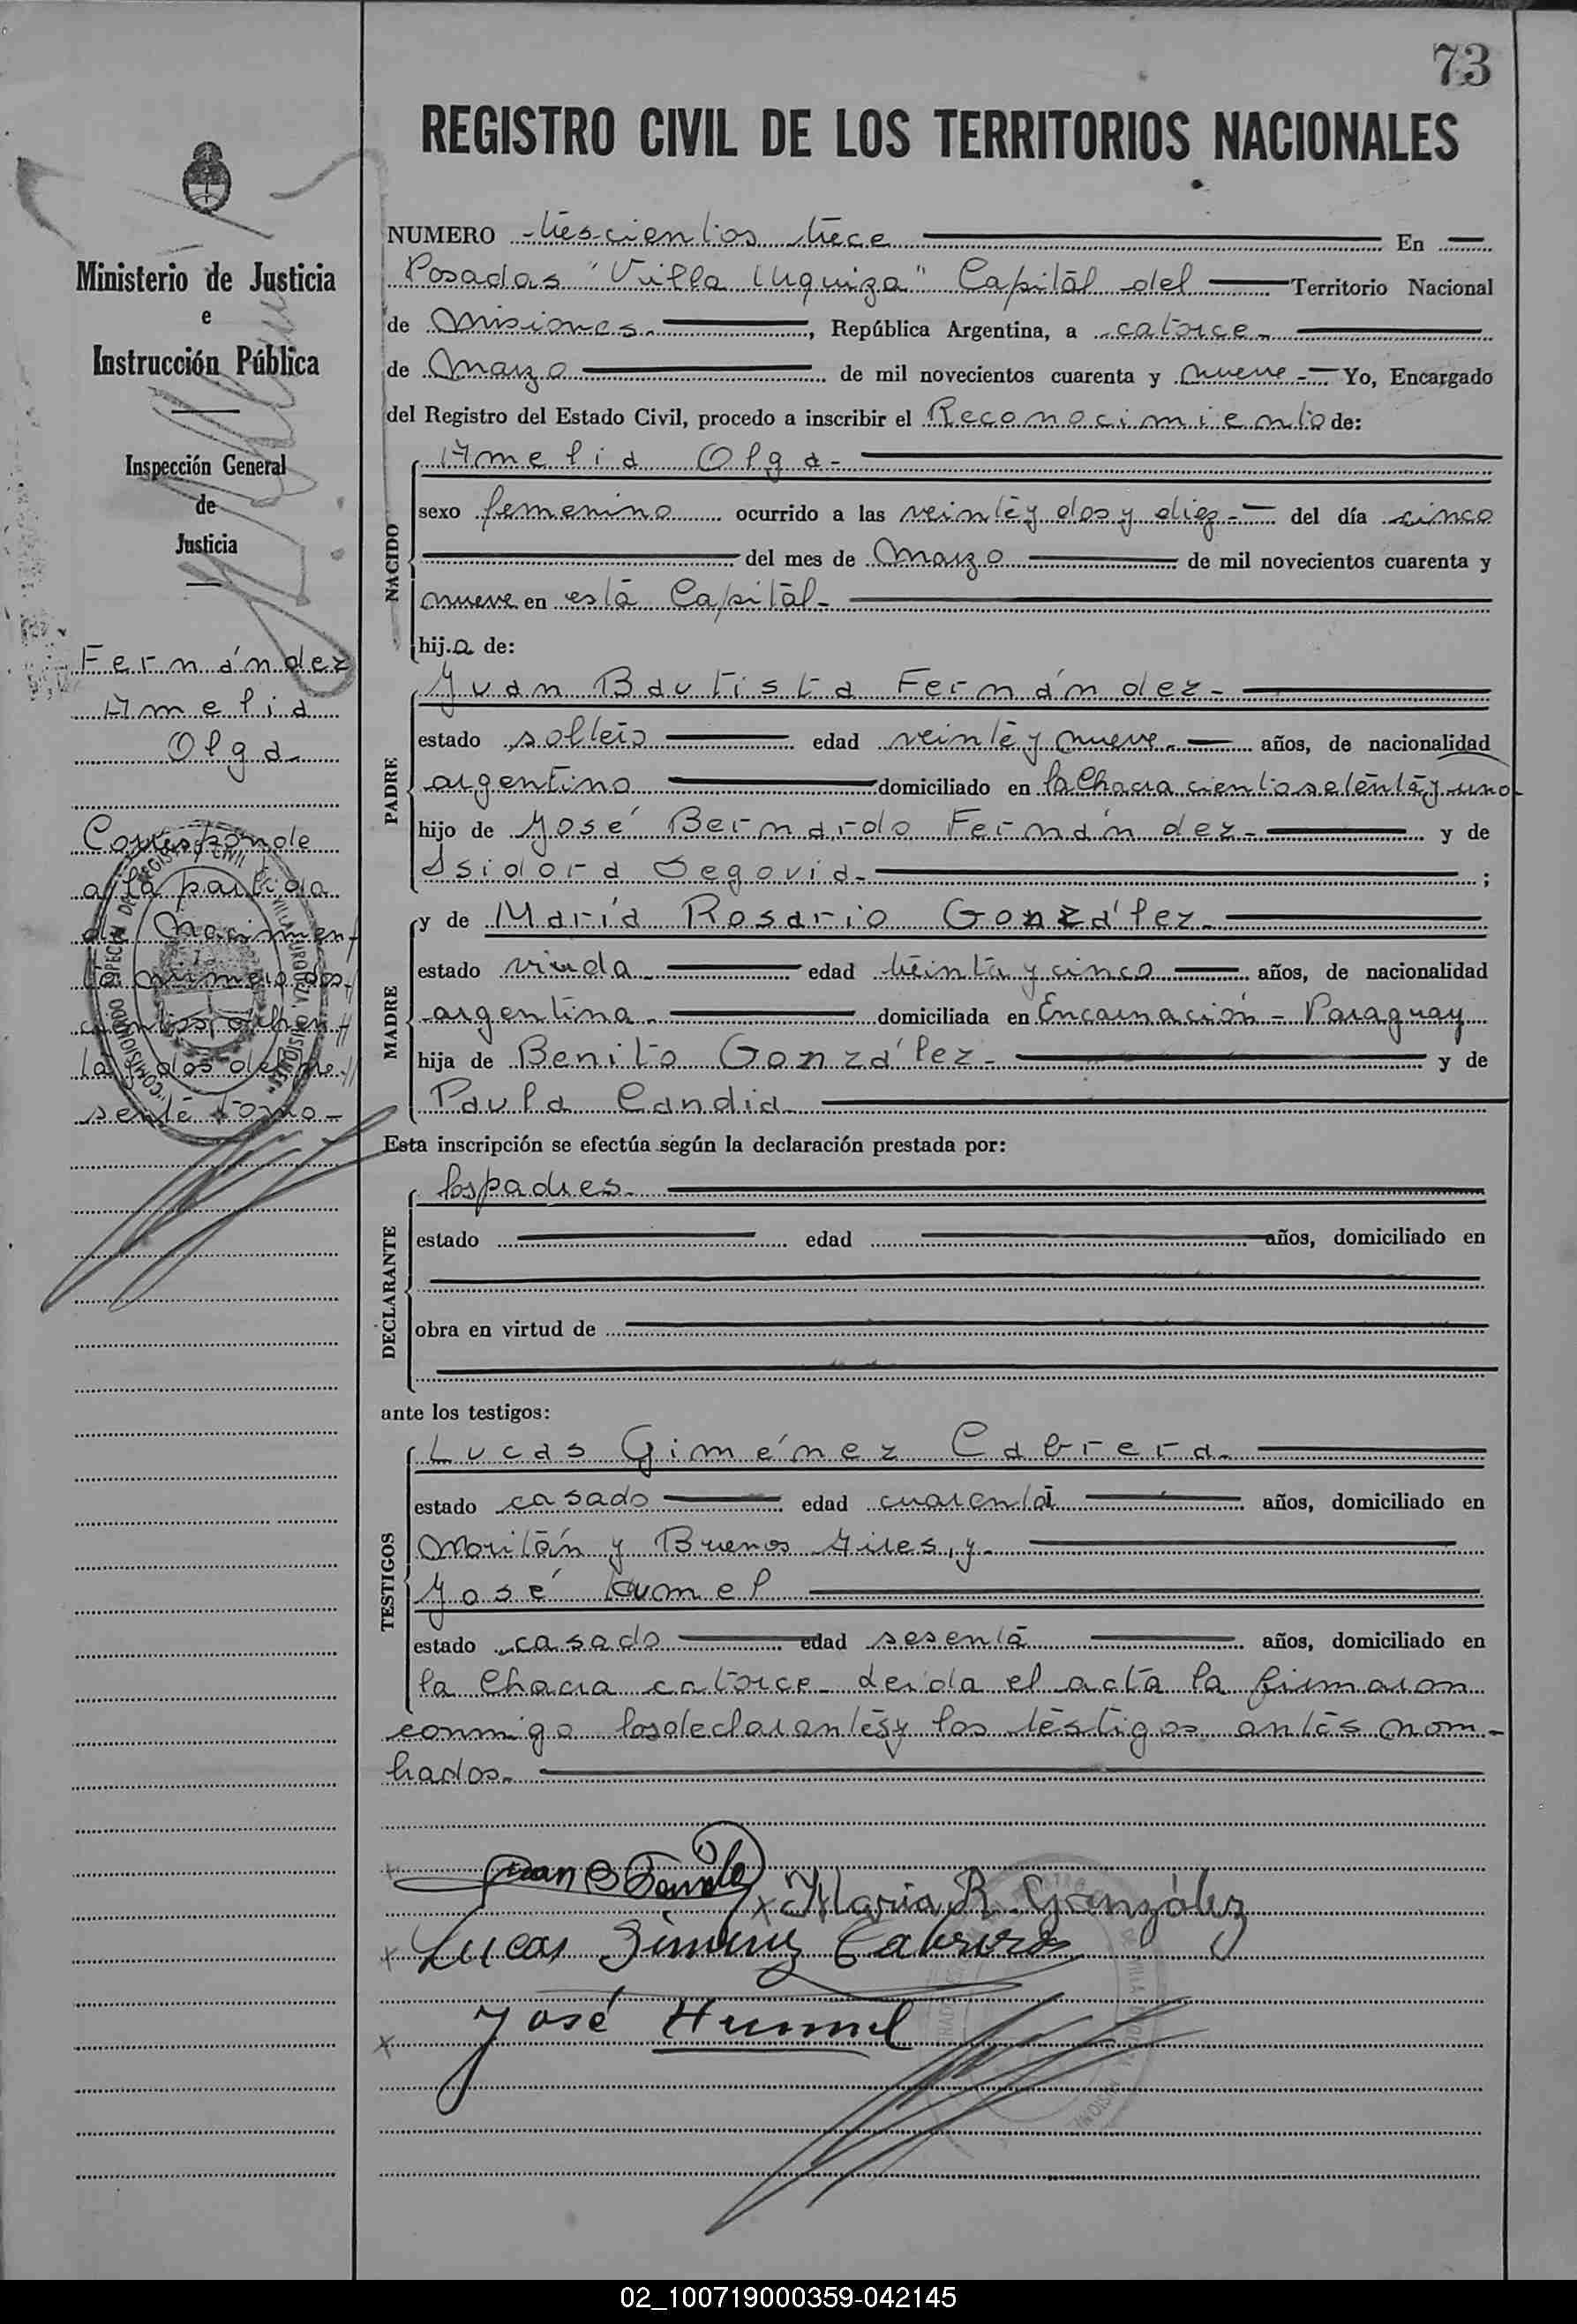 73
REGISTRO CIVIL DE LOS TERRITORIOS NACIONALES
Ministerio de Justicia
e
Instrucción Pública
Inspección General
de
Justicia
Fernández
Amelia
Olga
Corresponde
a la partida
de Nacimien-
to número dos-
cientos ochen-
ta y dos del pre-
sente tomo.-
NUMERO trescientos trece En
Posadas "Villa Urquiza" Capitál del Territorio Nacional
de Misiones.- , República Argentina, a catorce-
de Marzo de mil novecientos cuarenta y nueve.- Yo, Encargado
del Registro del Estado Civil, procedo a inscribir el Reconocimiento de:
NACIDO
Amelia Olga-
sexo femenino ocurrido a las veinte y dos y diez.- del día cinco
del mes de Marzo de mil novecientos cuarenta y
nueve en está Capitál-
hij.a de:
PADRE
Juan Bautista Fernández-
estado soltero edad veinte y nueve.- años, de nacionalidad
argentino domiciliado en la Chacra ciento setenta y uno-
hijo de José Bernardo Fernández- y de
Isidora Segovia- ;
MADRE
y de María Rosario González-
estado viuda- edad treinta y cinco años, de nacionalidad
argentina- domiciliada en Encarnación - Paraguay
hija de Benito González- y de
Paula Candia-
Esta inscripción se efectúa según la declaración prestada por:
DECLARANTE
los padres-
estado edad años, domiciliado en
obra en virtud de
ante los testigos:
TESTIGOS
Lucas Giménez Cabrera-
estado casado edad cuarenta años, domiciliado en
Moritán y Buenos Aires, y-
José
estado casado edad sesenta años, domiciliado en
la Chacra catorce- Leída el acta la firmaron
conmigo los declarantes y los testigos antes nom-
brados.-
Juan B
x Maria R. González
x Lucas Gimenez Cabrera
x José Hummel
02_100719000359-042145